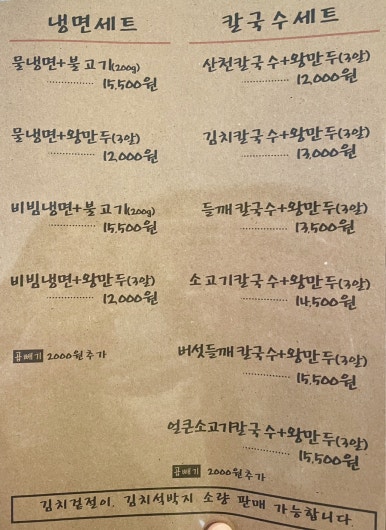 냉면세트
물냉면+불고기(200g)
15,500원
물냉면+왕만두(3알)
12,000원
비빔냉면+불고기(200g)
15,500원
비빔냉면+왕만두(3알)
12,000원
곱빼기 2000원추가
칼국수세트
산천칼국수+왕만두(3알)
12,000원
김치칼국수+왕만두(3알)
13,000원
들깨칼국수+왕만두(3알)
13,500원
소고기칼국수+왕만두(3알)
14,500원
버섯들깨칼국수+왕만두(3알)
15,500원
얼큰소고기칼국수+왕만두(3알)
15,500원
곱빼기 2000원추가
김치겉절이, 김치석박지 소량 판매 가능합니다.